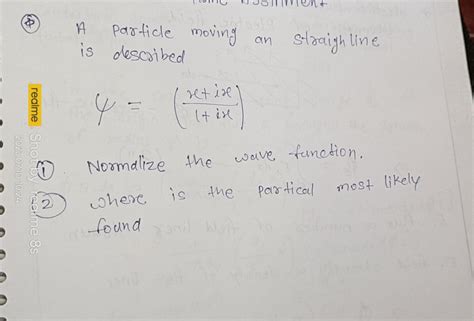 A particle moving an straighline
is described
ψ = (x+ix / 1+ix)
① Normalize the wave function.
② where is the partical most likely
found
realme